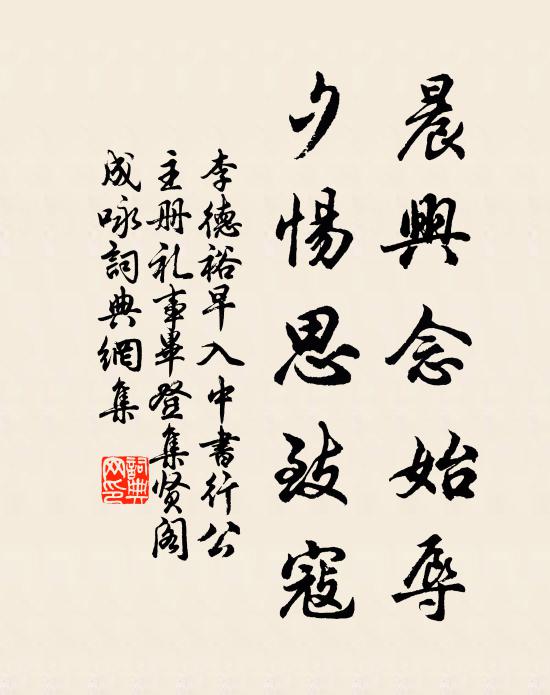 晨興念始辱
夕惕思致寇
李德裕早入中書行公
主册礼事畢登集贤阁
成咏詞典網集
詞典网印